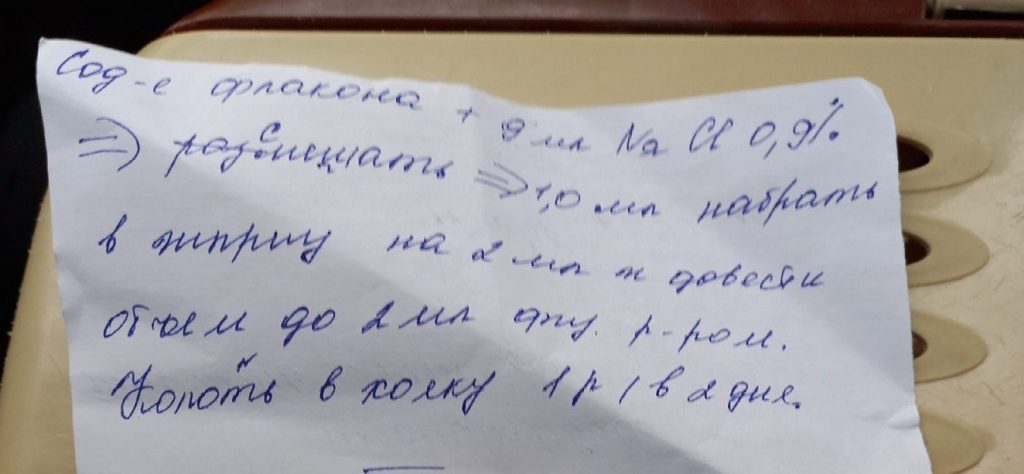 Сод-е флакона + 9 мл NaCl 0,9%
⇒ размешать ⇒ 1,0 мл набрать
в шприц на 2 мл и довести
объем до 2 мл физ. р-ром.
Колоть в холку 1 р / в 2 дня.